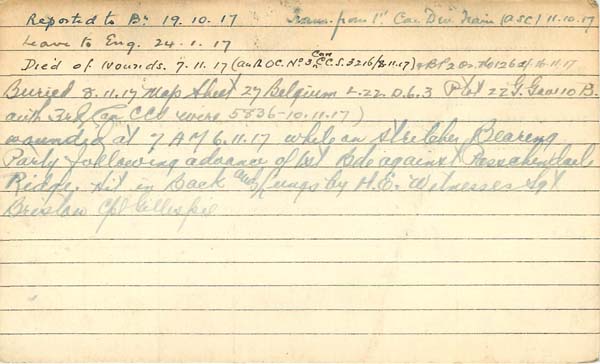 Reported to Bn 19.10.17 Trans. from 1st Can Div Train (ASC) 11.10.17
Leave to Eng. 24.1.17
Died of Wounds. 7.11.17 (auth OC. No 3 Can C.C.S. 3216/8.11.17)
Buried 8.11.17 Map Sheet 27 Belgium L.22.D.6.3 Plot 22 G. Grave 10 B.
auth 3rd Can CCS wire 5836-10.11.17)
wounded at 7 AM 6.11.17 while on stretcher Bearing
Party following advance of 1st Bde against Passchendaele
Ridge. Hit in back and lungs by H.E. Witnesses Sgt
Bristow Cpl Gillespie